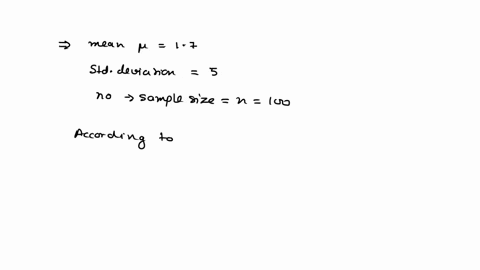 ⇒ mean μ = 1.7
Std. deviation = 5
no → sample size = n = 100
According to